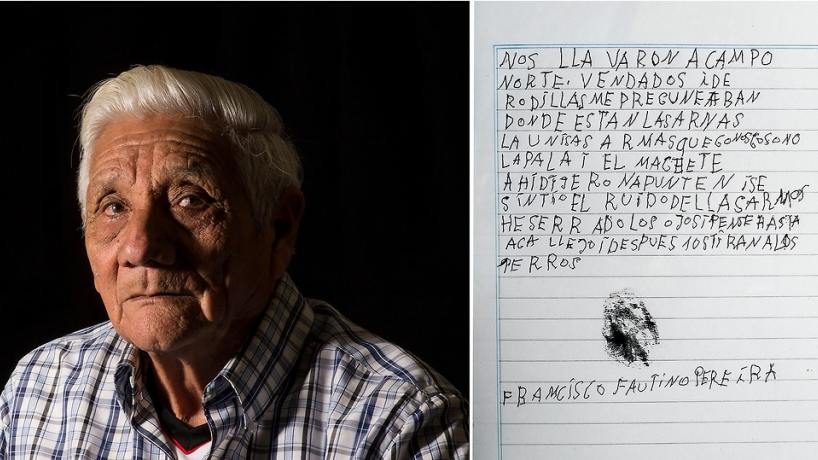 NOS LLA VARON A CAMPO
NORTE. VENDADOS I DE
RODILLAS ME PREGUNEABAN
DONDE ESTAN LAS ARNAS
LA UNISAS ARMAS QUE CONOSCOS ONO
LA PALA I EL MACHETE
A HI DIJERON APUNTEN I SE
SINTIO EL RUIDO DE LLAS ARMAS
HE SERRADO LOS OJOS I PENSE HASTA
ACA LLEJO I DESPUES LOS TIRAN A LOS
PERROS
FRANCISCO FAUTINO PEREIRA